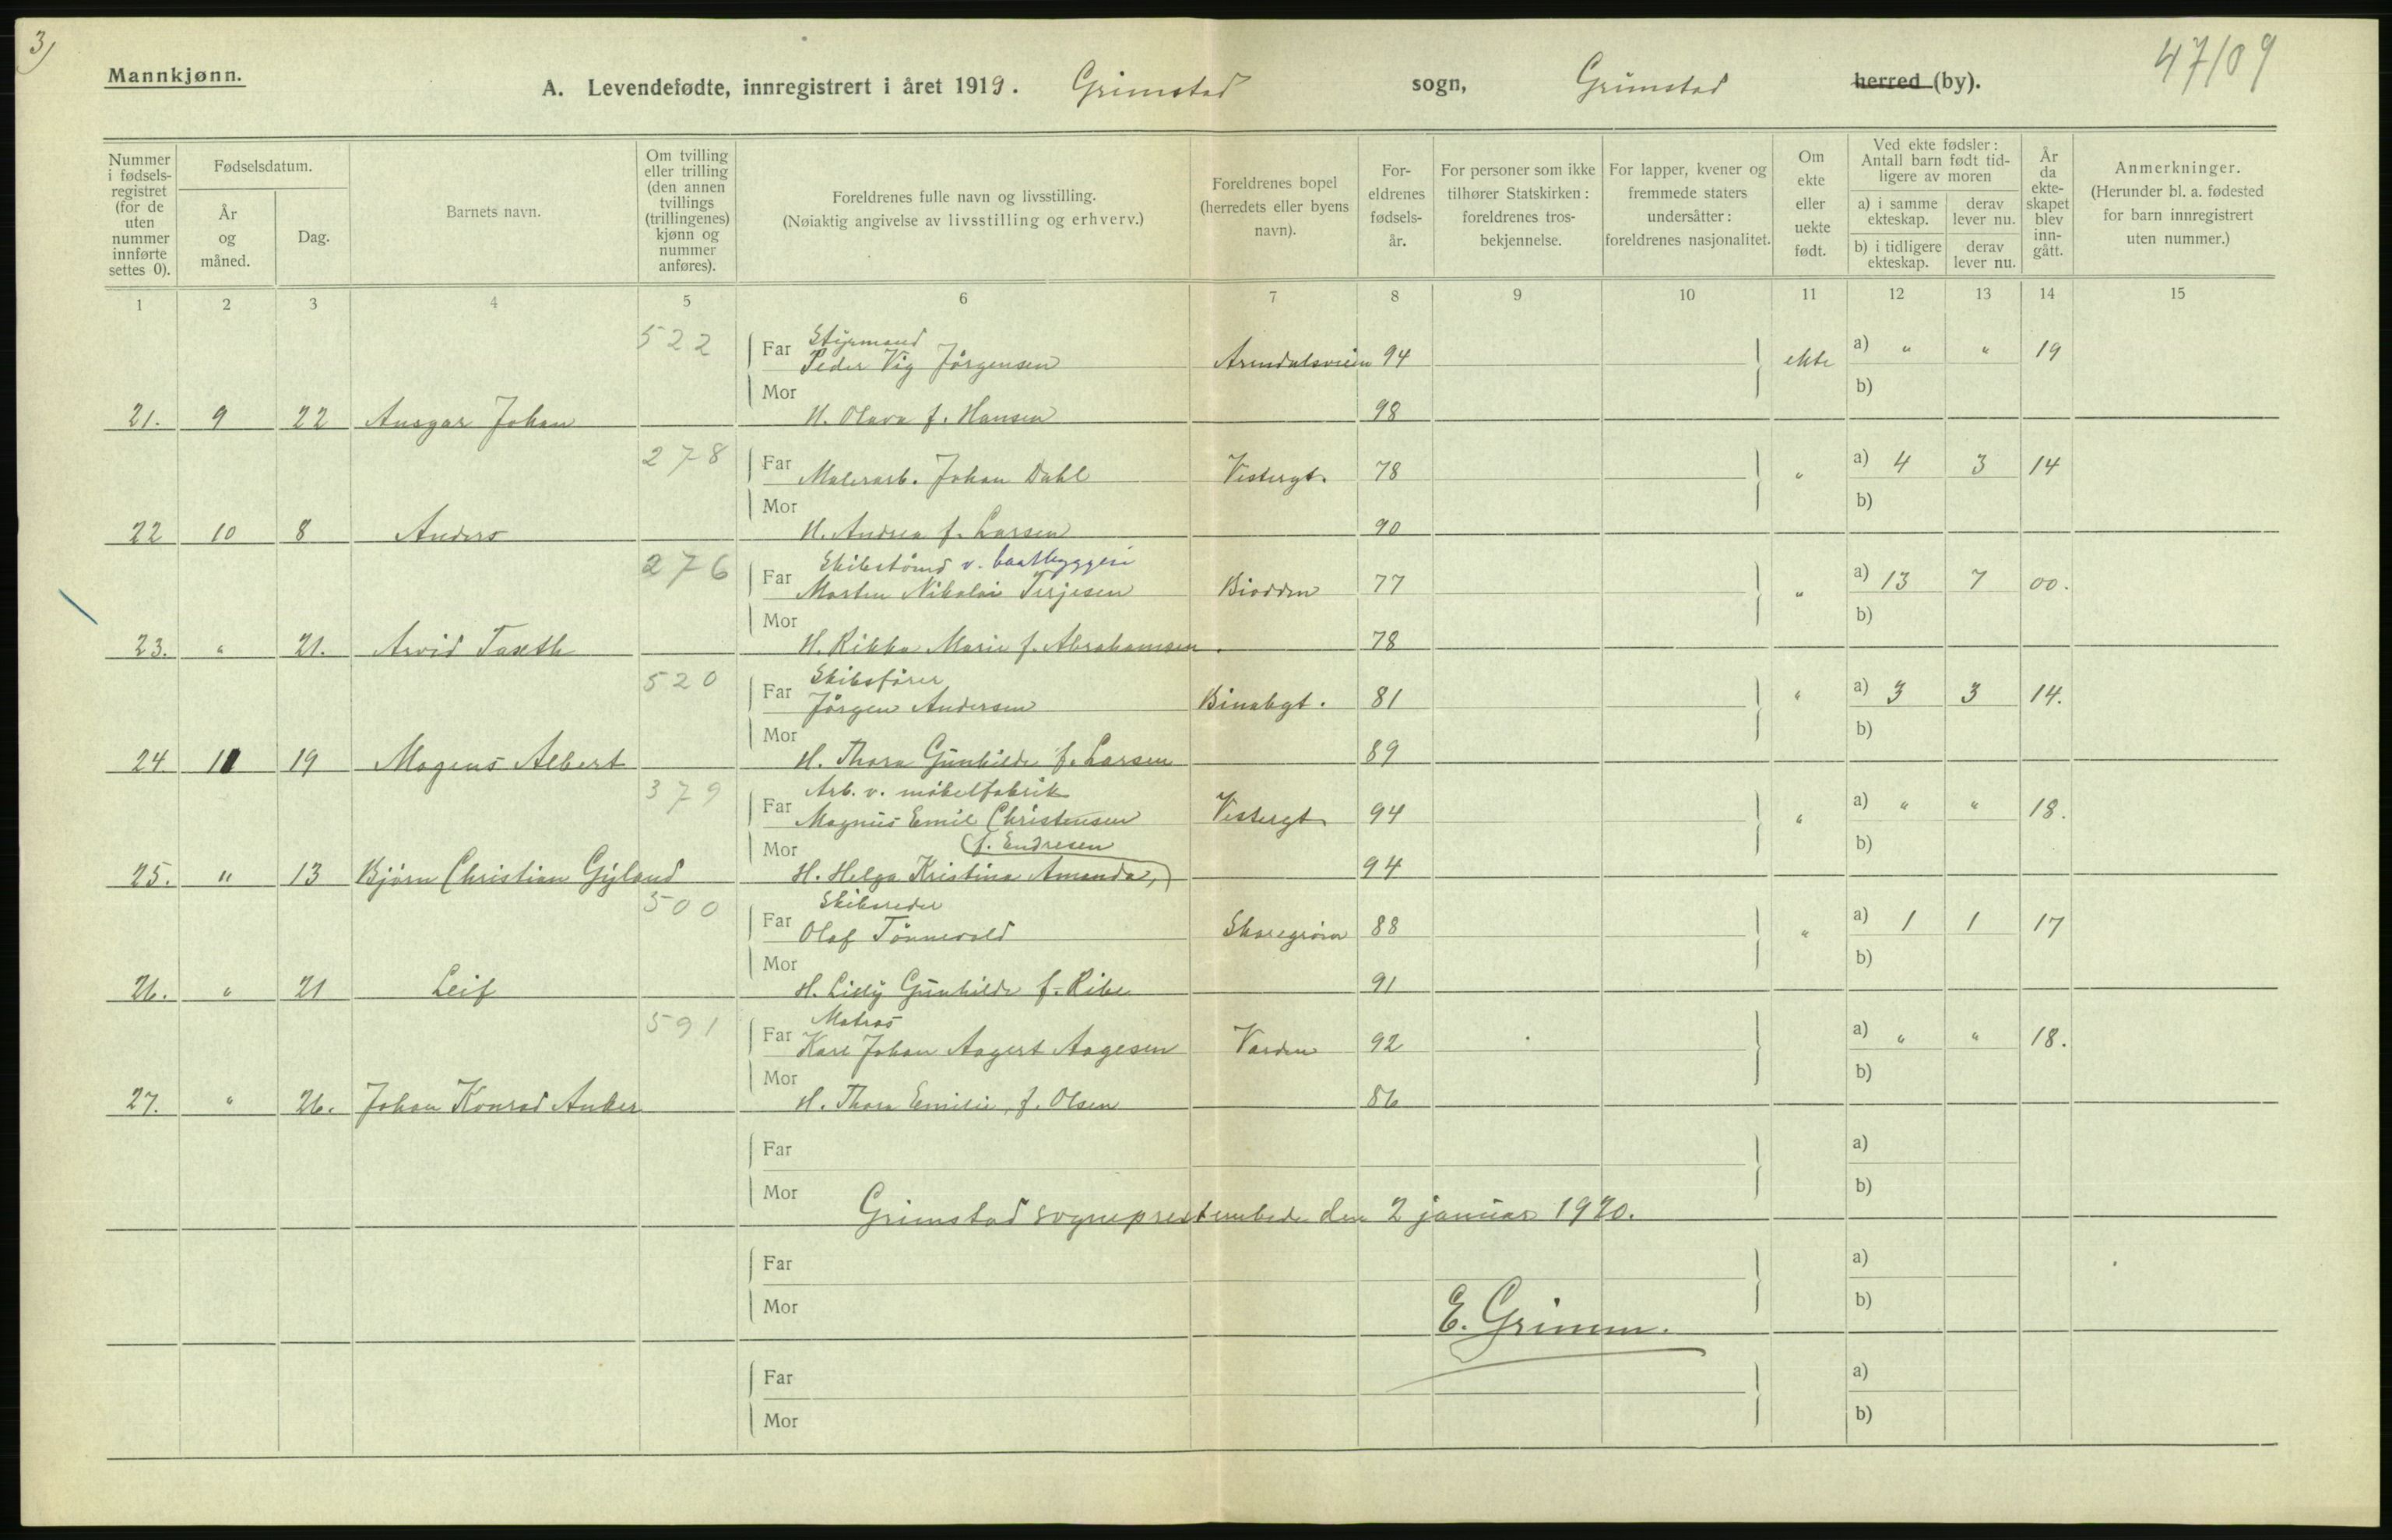 3)
Mannkjønn.
A. Levendefødte, innregistrert i året 1919. Grimstad sogn, Grimstad herred (by).
47/09
Nummer i fødselsregistret (for de uten nummer innførte settes 0).
Fødselsdatum.
År og måned.
Dag.
Barnets navn.
Om tvilling eller trilling (den annen tvillings (trillingenes) kjønn og nummer anføres).
Foreldrenes fulle navn og livsstilling.
(Nøiaktig angivelse av livsstilling og erhverv.)
Foreldrenes bopel (herredets eller byens navn).
Foreldrenes fødselsår.
For personer som ikke tilhører Statskirken: foreldrenes trosbekjennelse.
For lapper, kvener og fremmede staters undersåtter: foreldrenes nasjonalitet.
Om ekte eller uekte født.
Ved ekte fødsler: Antall barn født tidligere av moren
a) i samme ekteskap.
derav lever nu.
b) i tidligere ekteskap.
derav lever nu.
År da ekteskapet blev inngått.
Anmerkninger.
(Herunder bl. a. fødested for barn innregistrert uten nummer.)
1 2 3 4 5 6 7 8 9 10 11 12 13 14 15
522 Styrmand
Far Peder Vig Jörgensen Arendalsveien 94 ekte a) " " 19
Mor b)
21. 9 22 Ansgar Johan H. Olava f. Hansen 98
278 Far Malerarb. Johan Dahl Vestergt. 78 " a) 4 3 14
Mor b)
22 10 8 Anders H. Andrea f. Larsen 90
276 Skibstömd v. baatbyggeri
Far Morten Nikolai Terjesen Biodden 77 " a) 13 7 00.
Mor b)
23. " 21. Arvid Taxth H. Rikka Marie f. Abrahamsen. 78
520 Skibsfører
Far Jörgen Andersen Binabgt. 81 " a) 3 3 14.
Mor b)
24. 11 19 Mogens Albert H. Thora Gunhilde f. Larsen 89
379 Arb. v. möbelfabrik
Far Magnus Emil Christensen Vestergt. 94 " a) " " 18.
Mor (f. Endresen b)
25. " 13 Bjørn Christian Gyland H. Helga Kristina Amanda,) 94
500 Skibsreder
Far Olaf Tönnevold Skaregröm 88 " a) 1 1 17
Mor b)
26. " 21 Leif H. Lilly Gunhilde f. Ribe 91
591 Matros
Far Karl Johan Aagert Aagesen Varden 92 a) " " 18.
Mor b)
27. " 26. Johan Konrad Anker H. Thora Emilie, f. Olsen 86
Far a)
Mor b)
Grimstad sogneprestembede den 2 januar 1920.
Far a)
Mor b)
E. Grimm.
Far a)
Mor b)